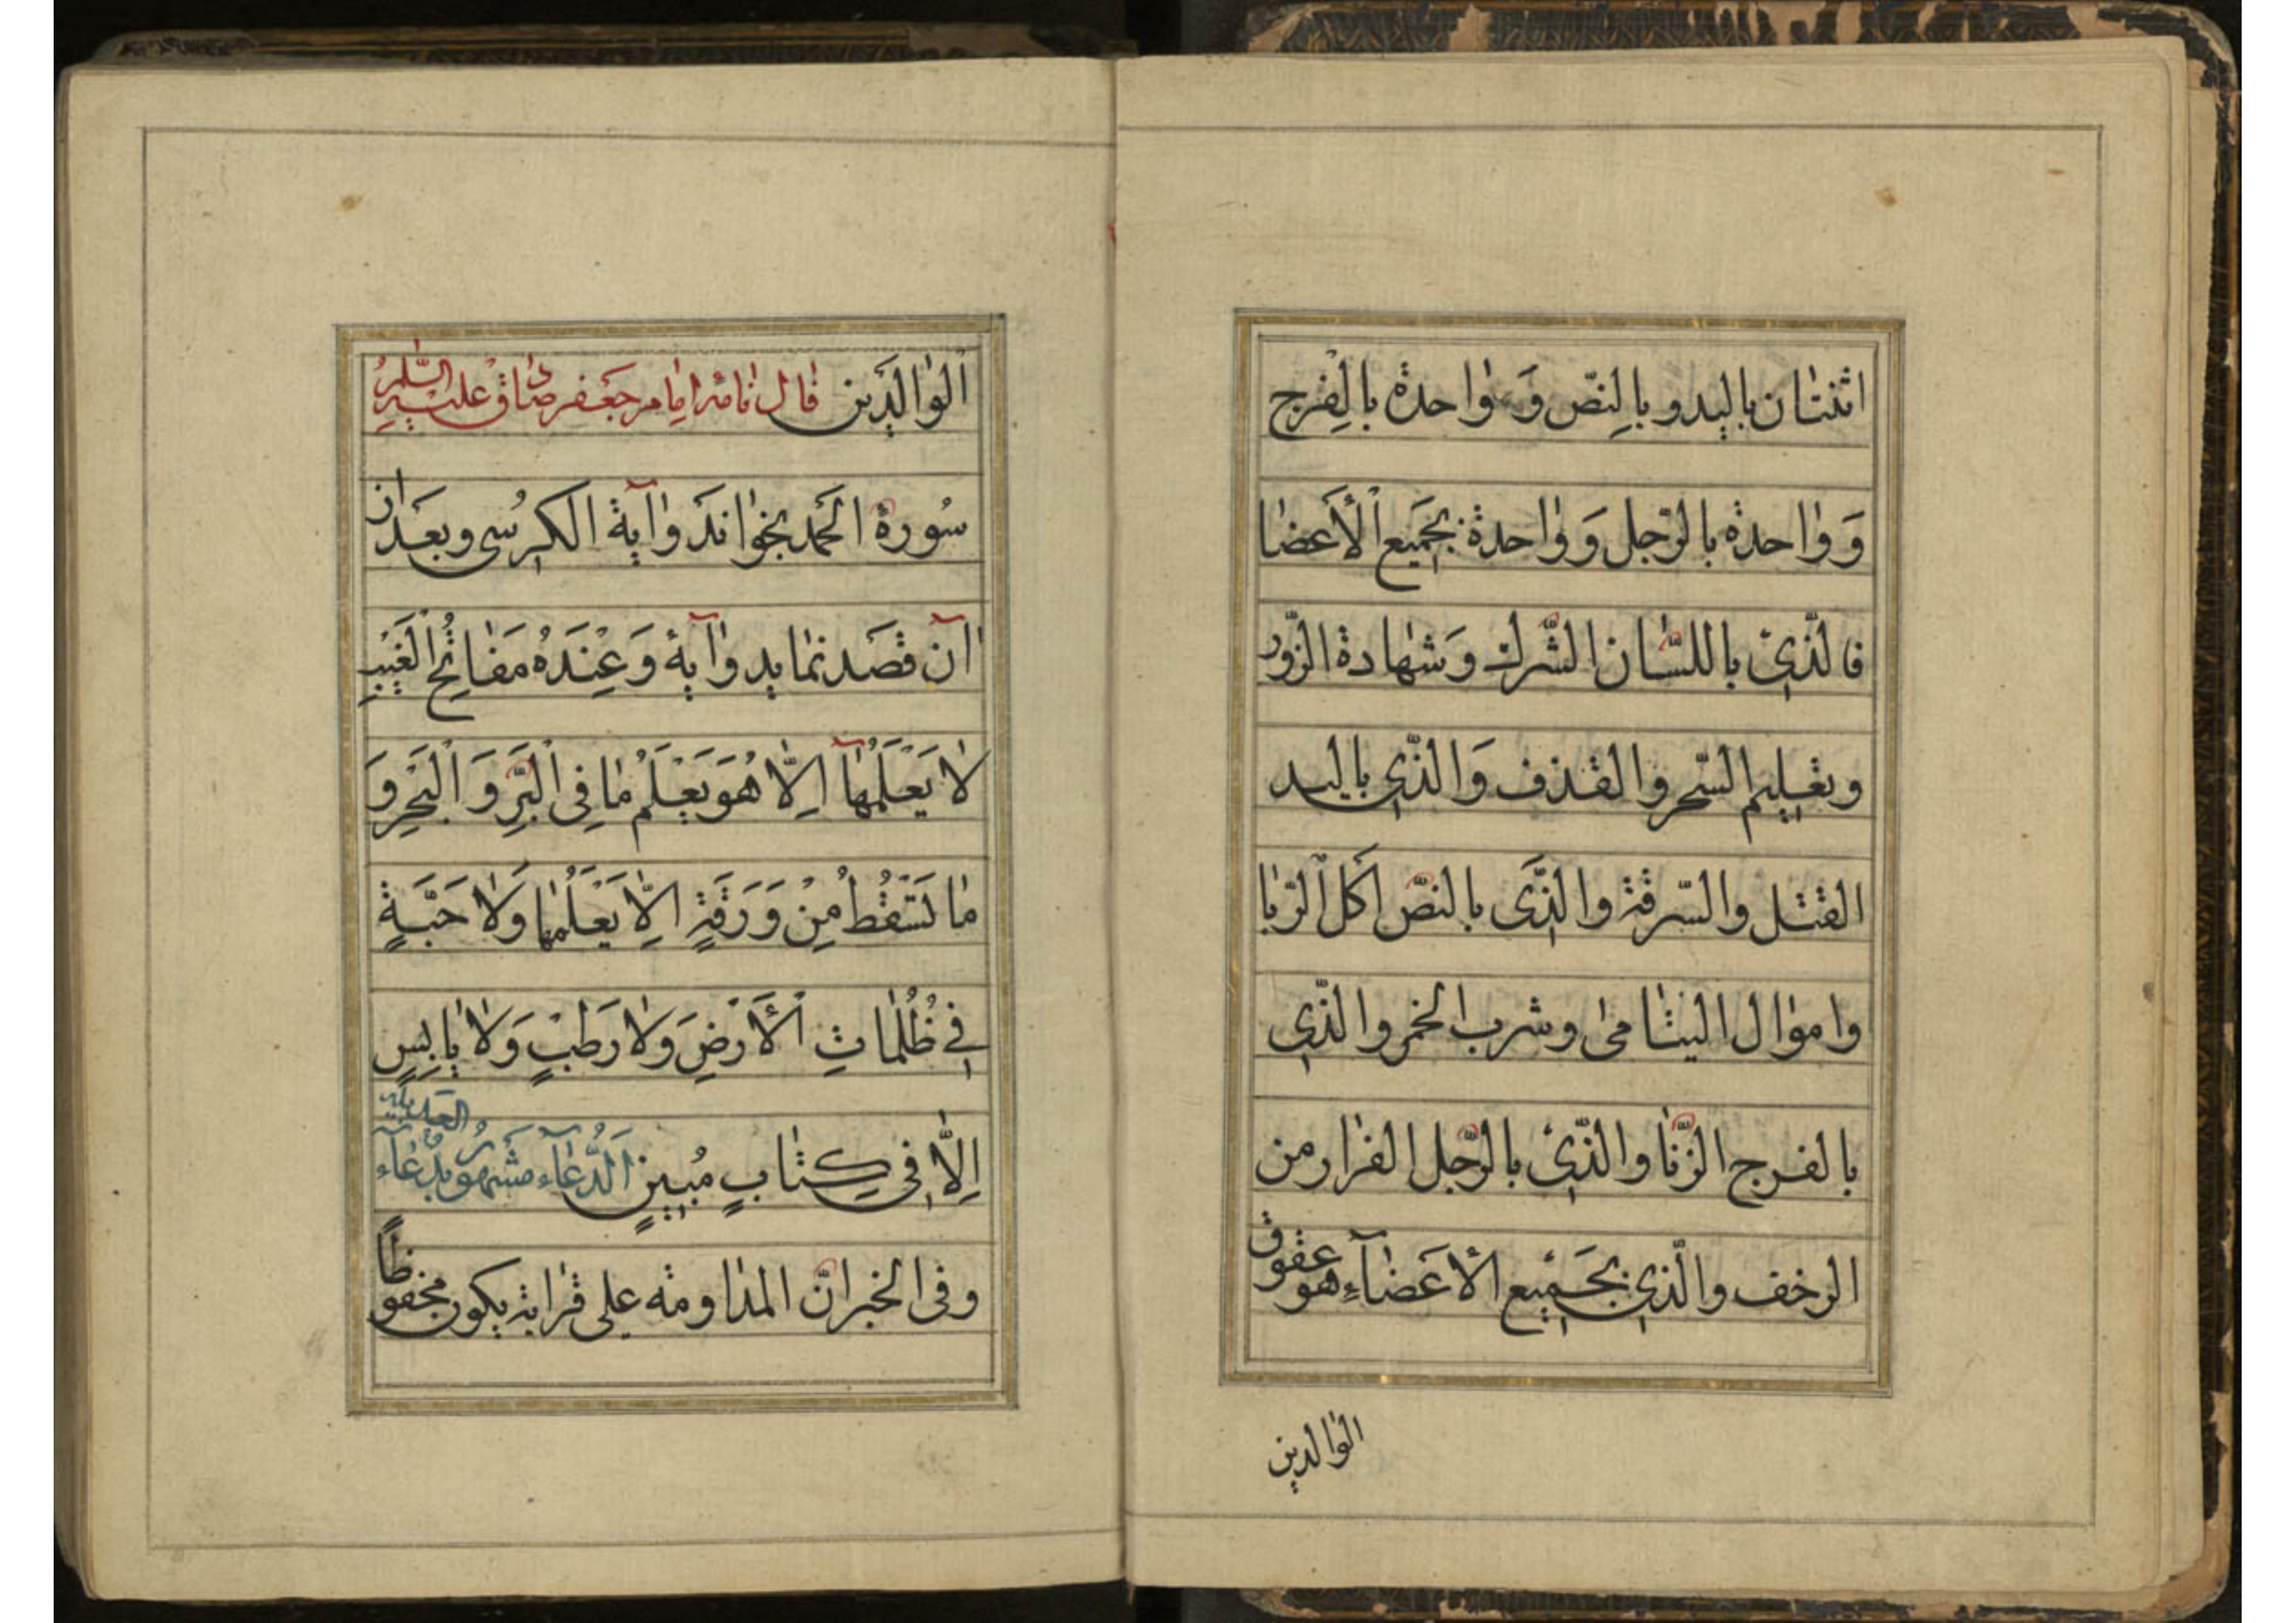 اثنتان باليد و بالنصّ وَ واحدة بالفرج
وَ واحدة بالرّجل وَ واحدة بجَميع الأعضا
فالّذي باللسّان الشّرك وَ شهادة الزّور
و تعليم السّحر و القذف وَ الذّي باليد
القتل و السّرقة و الذّى بالنصّ اكل الرّبا
و اموال اليتامى و شرب الخمر و الذّي
بالفرج الزّنا و الذّي بالرّجل الفرار من
الزخف و الّذي بجَميع الأعضآء هو عقوق
الوالدين
الوالدَين فال نامهٔ امام جعفر صادق عليه السّلام
سُورة الحَمد بخواند و آية الكرسى و بعَد از
آن قصَد نمايد و آيهٔ وَ عِنْدَهُ مَفاتِحُ الْغَيْبِ
لا يَعْلَمُهآ اِلاّ هُوَ يَعْلَمُ ما فِى الْبَرِّ وَ الْبَحْرِ وَ
ما تَسْقُطُ مِنْ وَرَقَةٍ اِلاّ يَعْلَمُها وَلا حَبَّةٍ
فِي ظُلُماتِ الْأَرْضِ وَلا رَطْبٍ وَلا يابِسٍ
اِلاّ فِي كِتابٍ مُبِينٍ الَدُّعآء مشَهُور بدُعآء العديلة
و فى الخبر انّ المداومه على قرايته يكون محفوظًا